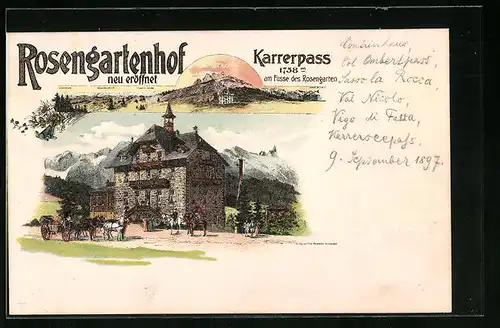 Rosengartenhof
neu eröffnet
Karrerpass
1758 m
am Fusse des Rosengarten
Ombertpass,
Sasso la Rocca,
Val Nicolo,
Vigo di Fassa,
Karerseepass,
9. September 1897.